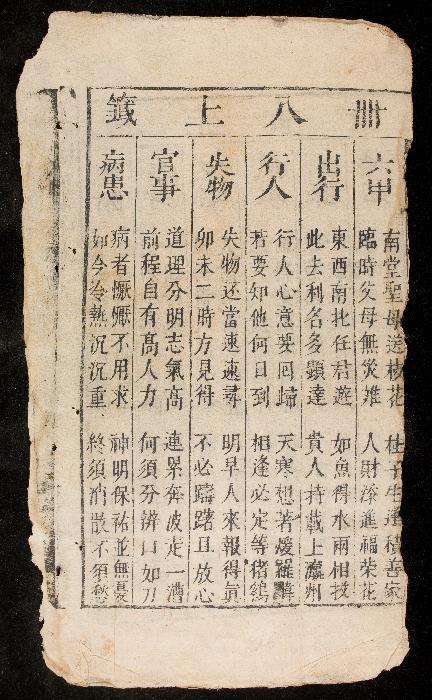 卌八上籤
六甲
南堂聖母送枝花 桂子生逢積善家
臨時父母無災难 人財添進福榮花
出行
東西南北任君遊 如魚得水兩相投
此去利名多顯達 貴人持載上瀛州
行人
行人心意要回歸 天寒想著煖羅幃
若要知他何日到 相逢必定等猪
失物
失物还當速速尋 明早人來報得眞
卯未二時方見得 不必躊躇且放心
官事
道理分明志氣高 連累奔波走一漕
前程自有高人力 何須分辨口如刀
病患
病者懨懨不用求 神明保祐並無憂
如今冷熱沉沉重 終須消散不須愁